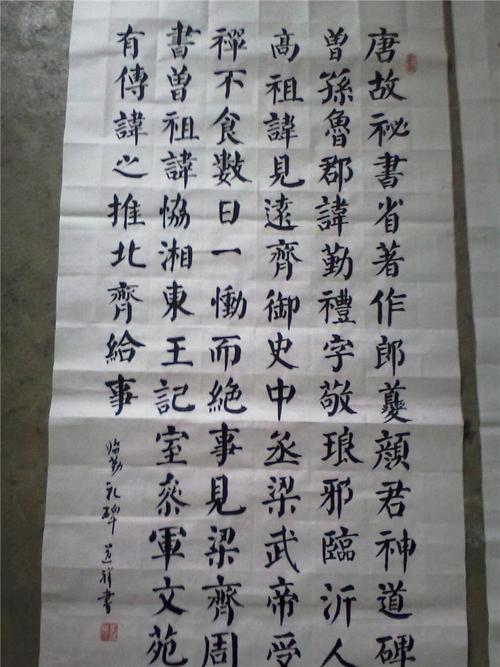 唐故祕書省著作郎夔顏君神道碑
曾孫魯郡諱勤禮字敬琅邪臨沂人
高祖諱見遠齊御史中丞梁武帝受
禪不食數日一慟而絕事見梁齊周
書曾祖諱恊湘東王記室叅軍文苑
有傳諱之推北齊給事
臨勤礼碑 道祥書